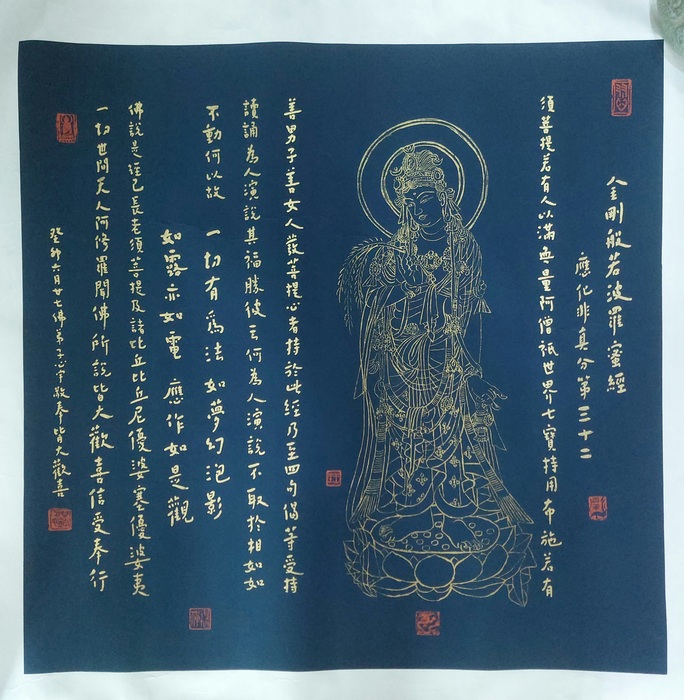 金剛般若波羅蜜經
應化非真分第三十二
須菩提若有人以滿無量阿僧祇世界七寶持用布施若有
善男子善女人發菩提心者持於此經乃至四句偈等受持
讀誦為人演說其福勝彼云何為人演說不取於相如如
不動何以故 一切有為法 如夢幻泡影
如露亦如電 應作如是觀
佛說是經已長老須菩提及諸比丘比丘尼優婆塞優婆夷
一切世間天人阿修羅聞佛所說皆大歡喜信受奉行
癸卯六月十七佛弟子心宇敬奉皆大歡喜